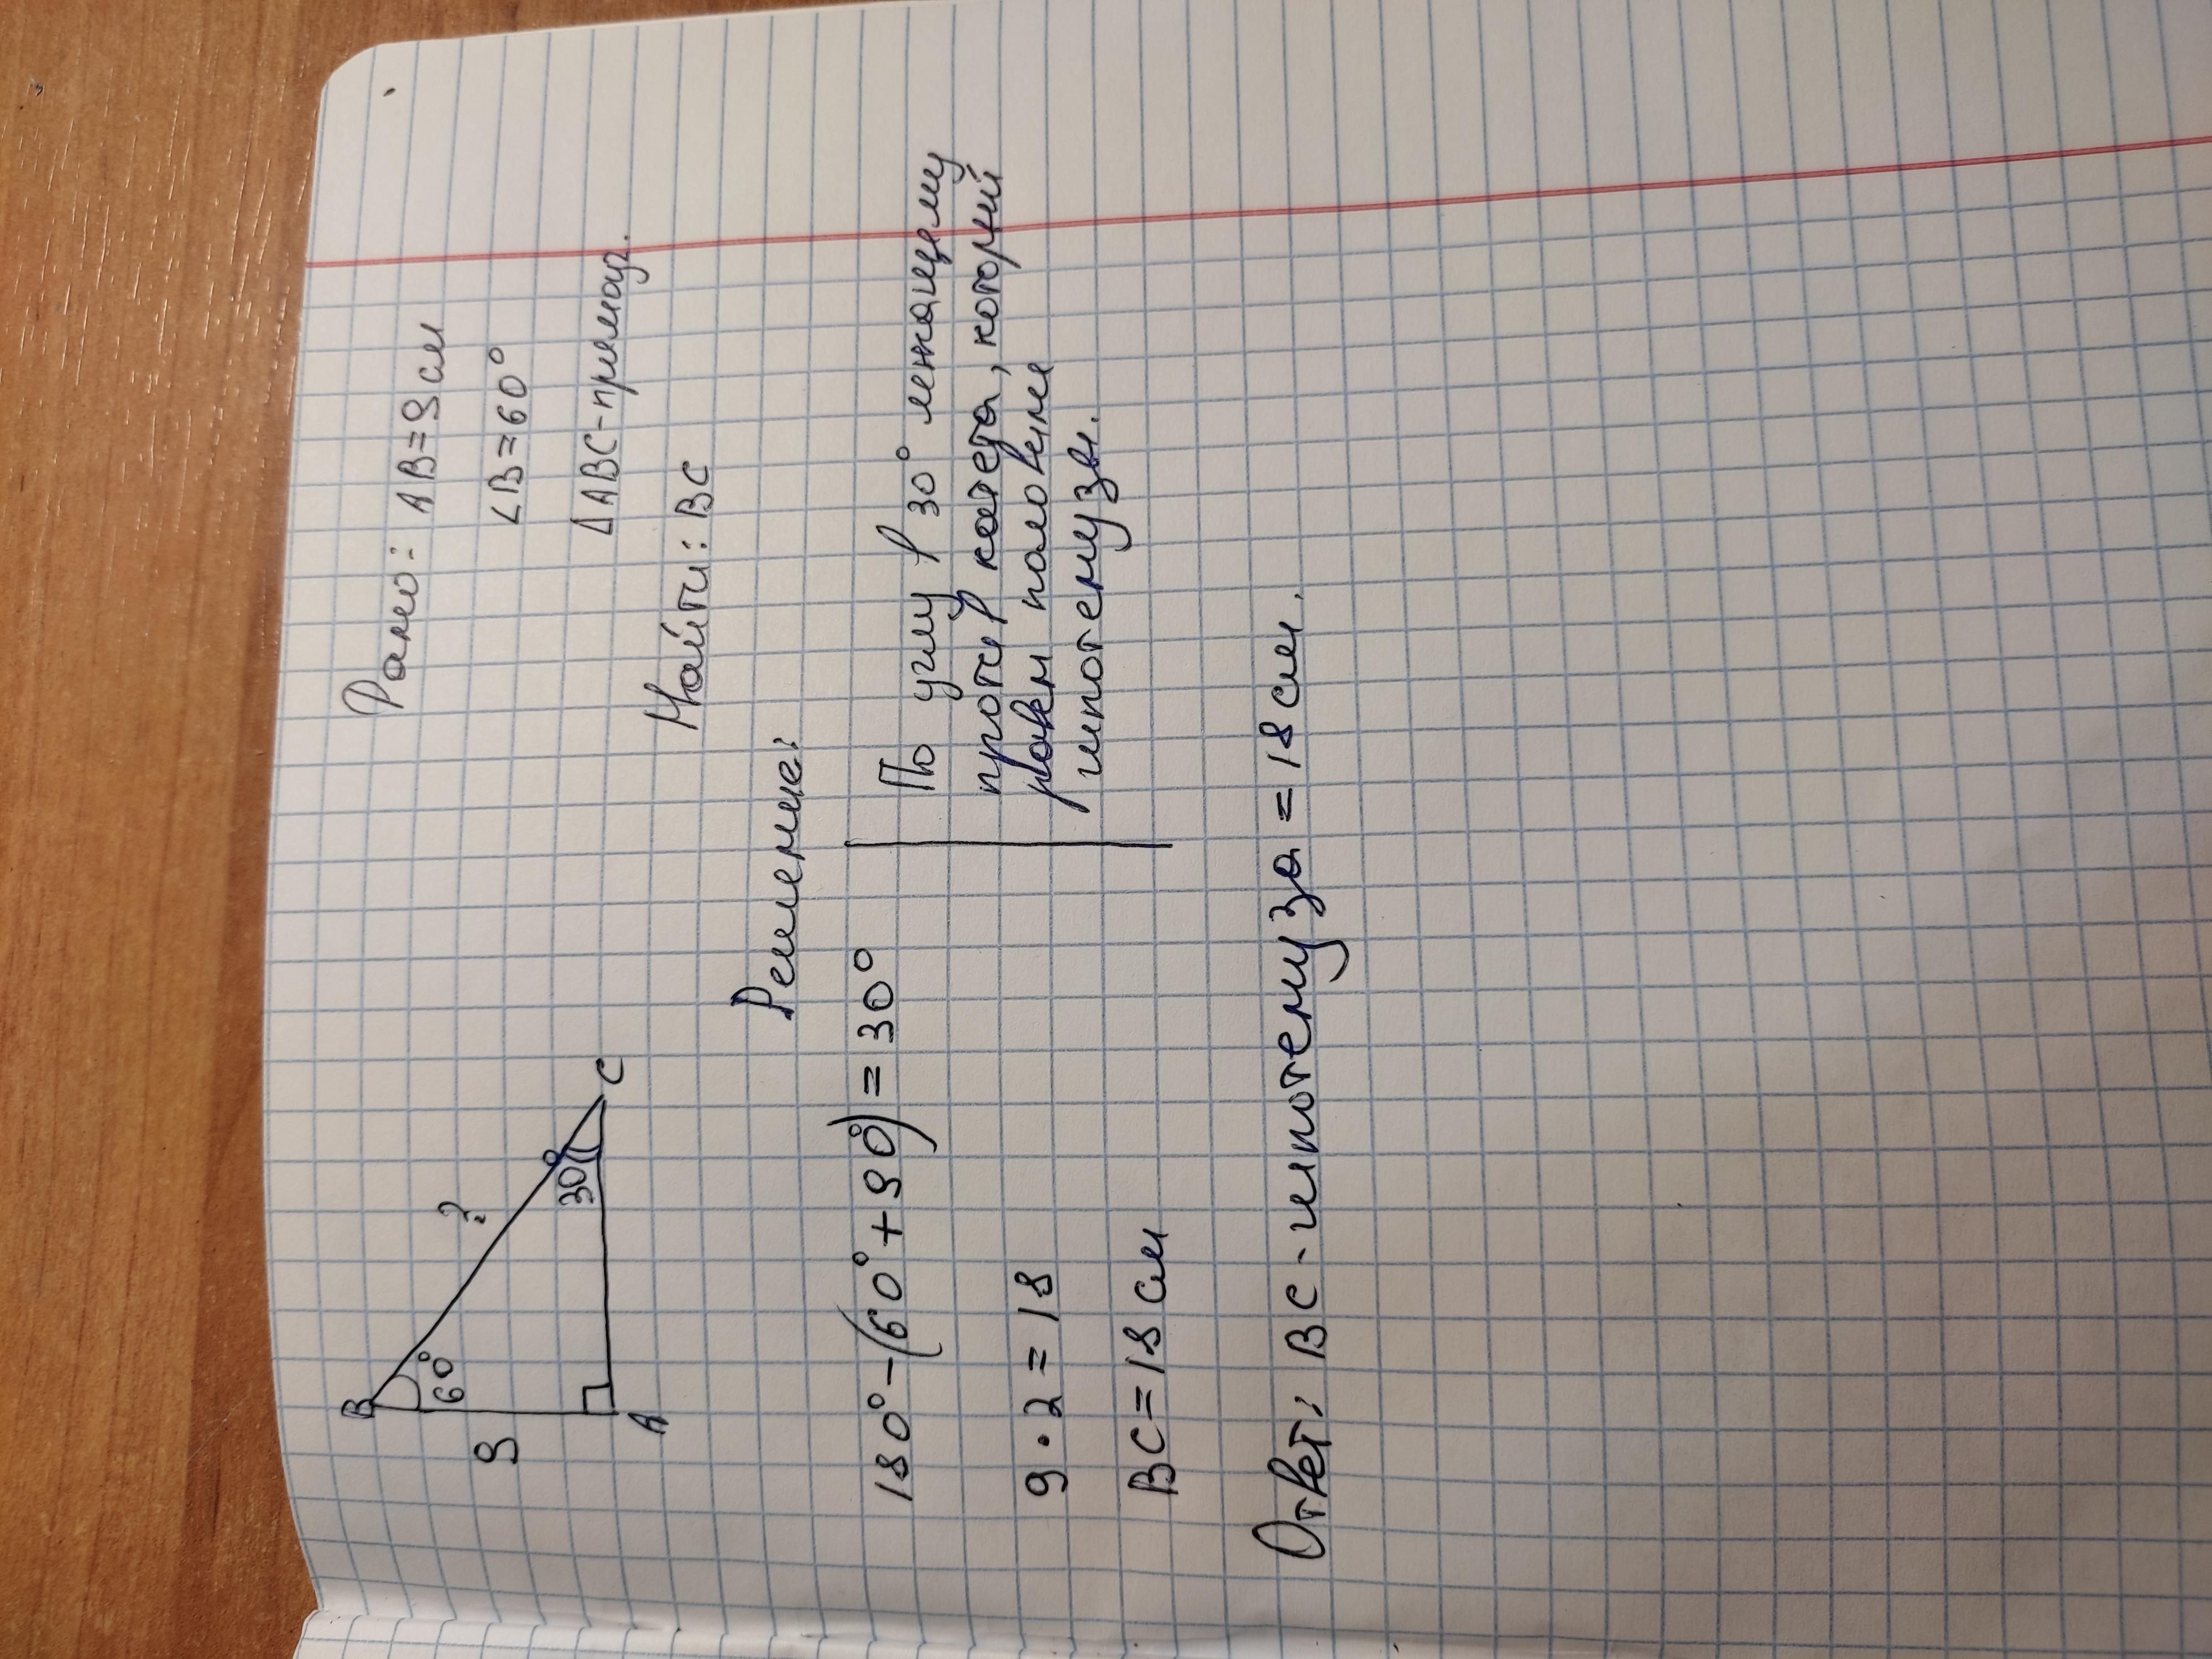 Дано: AB=9см
∠B=60°
△ABC-прямоуг.
Найти: BC
B
60°
9
?
30°
A
C
Решение:
180°-(60°+90°)=30°
9·2=18
BC=18см
По углу в 30° лежащему
против катета, который
равен половине
гипотенузы.
Ответ: BC-гипотенуза=18см.